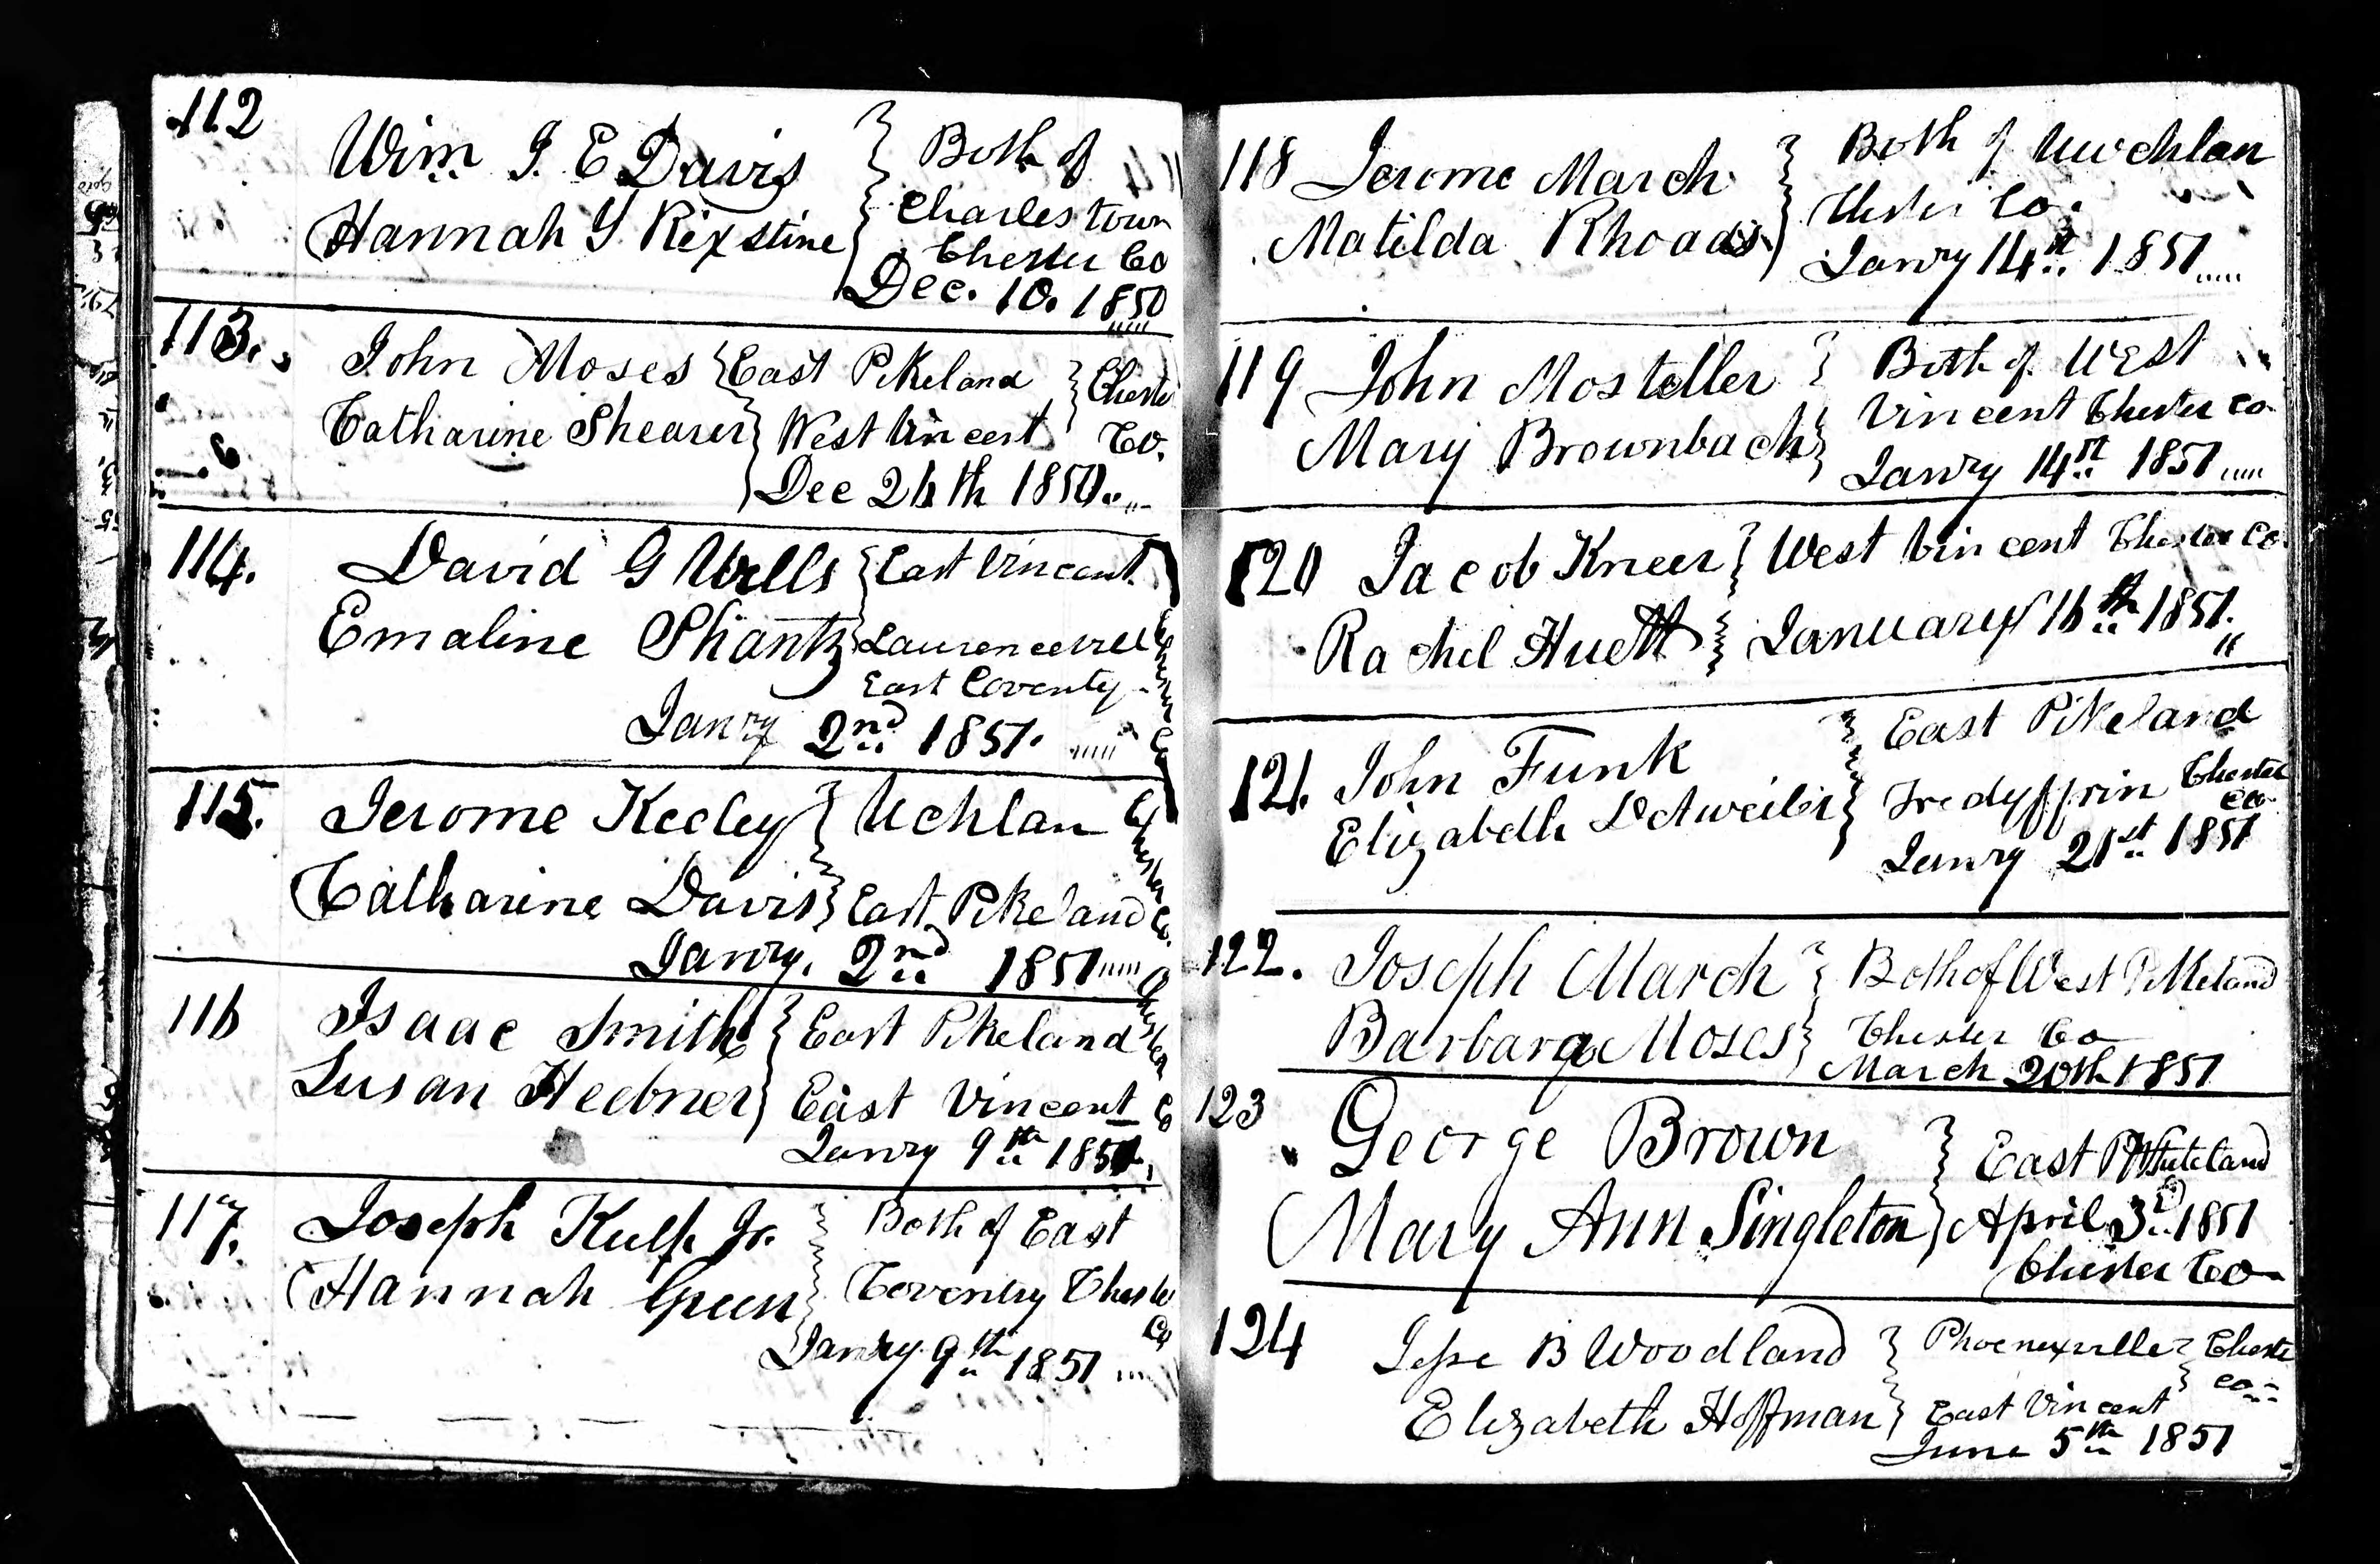 112
Wim J. E Davis } Both of
Hannah Y. Rixstine } Charlestown
Chester Co
Dec. 10. 1850
113.
John Moses { East Pikeland } Chester
Catharine Shearer } West Vincent } Co.
Dec 26th 1850.
114.
David G Wells { East Vincent
Emaline Shantz { Laurenceville
East Coventy
Chester Co
Janry 2nd 1851.
115.
Jerome Keeley } Uchlan
Catharine Davis } East Pikeland
Chester Co.
Janry. 2nd 1851
116
Isaac Smith } East Pikeland
Susan Hebner } East Vincent
Chester Co
Janry 9th 1851.
117.
Joseph Kulp Jr. } Both of East
Hannah Green } Coventry Chester
Co
Janry 9th 1851
118 Jerome March } Both of Uwchlan
Matilda Rhoads } Chester Co.
Janry 14th 1851
119 John Mosteller } Both of West
Mary Brownback } Vincent Chester Co
Janry 14th 1851
120 Jacob Kneer } West Vincent Chester Co.
Rachel Huett } January 16th 1851.
121. John Funk } East Pikeland
Elizabeth Detweiler } Tredyffrin Chester
Co
Janry 21st 1851
122. Joseph March } Both of West Pikeland
Barbara Moses } Chester Co
March 20th 1851
123
George Brown } East Whiteland
Mary Ann Singleton } April 3d. 1851
Chester Co
124
Jesse B Woodland } Phoenixville } Chester
Elizabeth Hoffman } East Vincent } Co
June 5th 1851